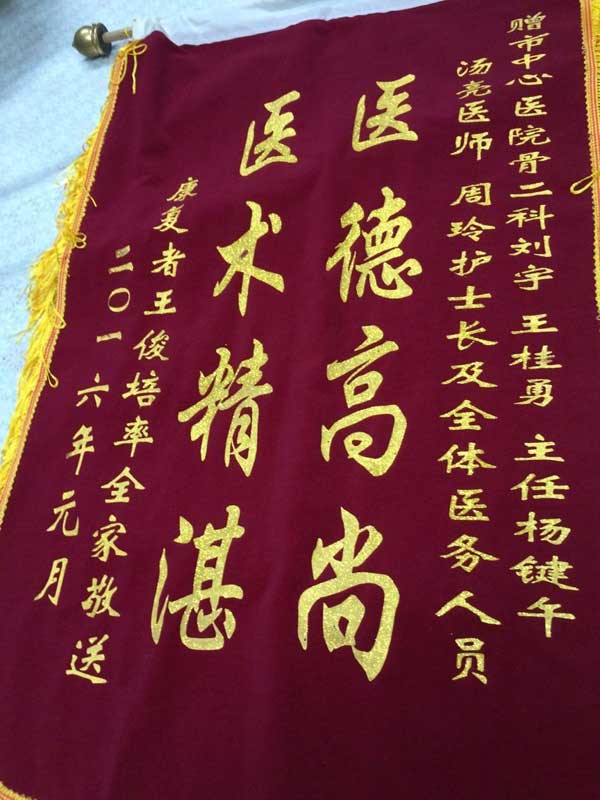 赠市中心医院骨二科刘宇 王桂勇 主任杨键午
汤亮医师 周玲护士长及全体医务人员
医德高尚
医术精湛
康复者王俊培率全家敬送
二〇一六年元月